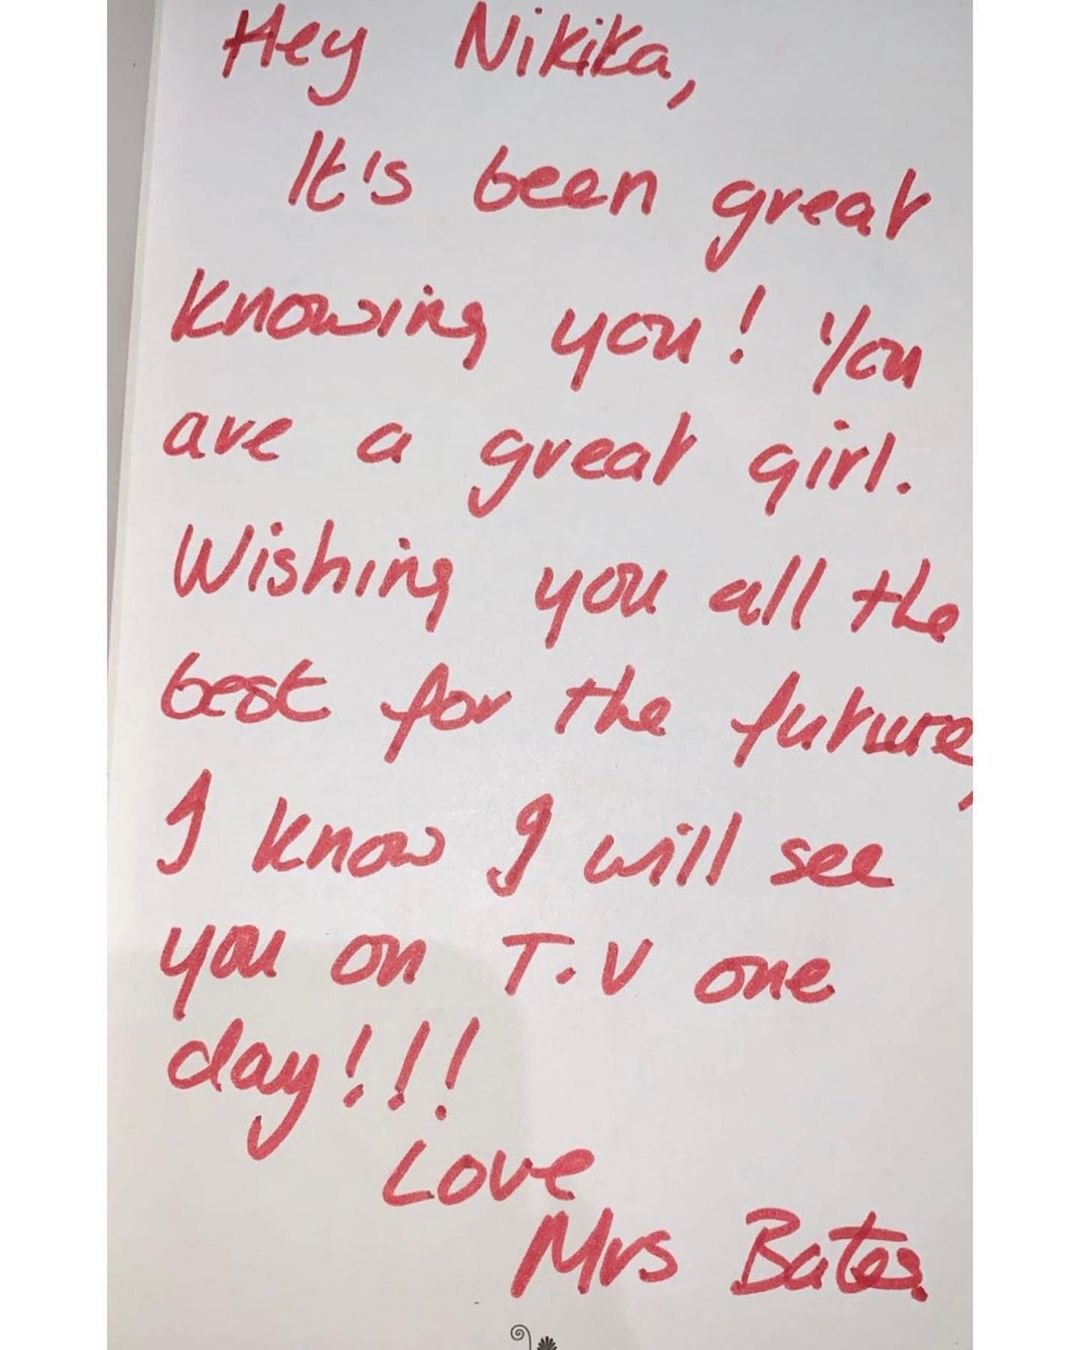 Hey Nikika,
It's been great
knowing you! You
are a great girl.
Wishing you all the
best for the future,
I know I will see
you on T.V one
day!!!
Love
Mrs Bates.